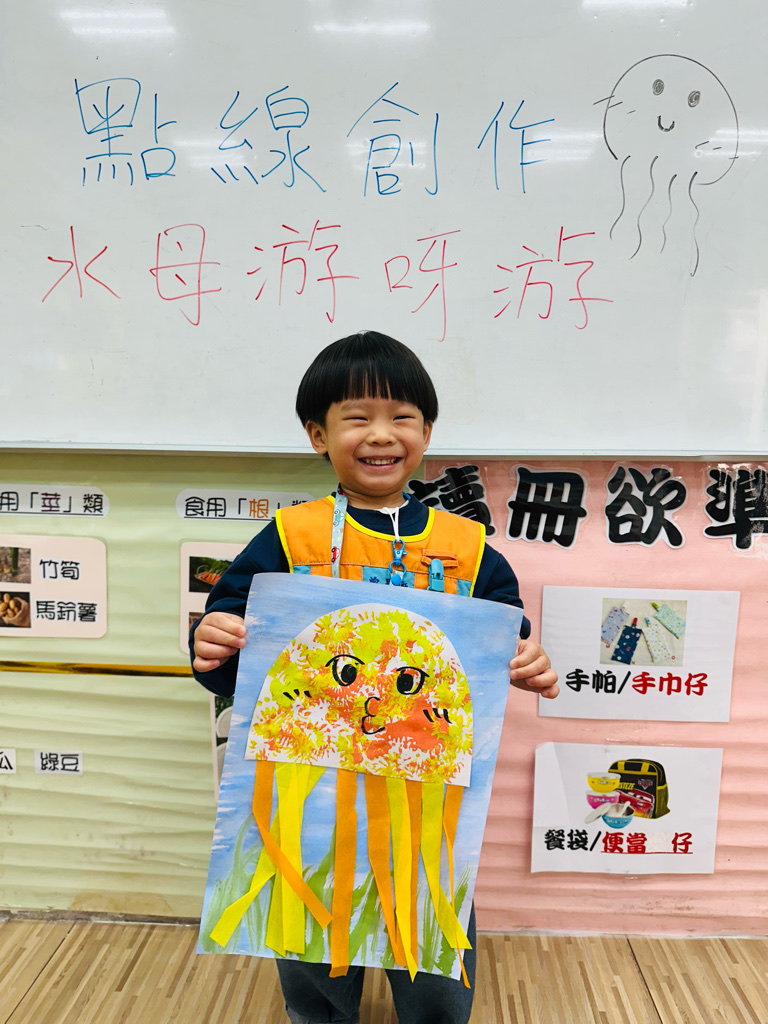 點線創作
水母游呀游
用「莖」類
食用「根」類
讀冊欲準
竹筍
馬鈴薯
手帕/手巾仔
瓜
綠豆
餐袋/便當 仔